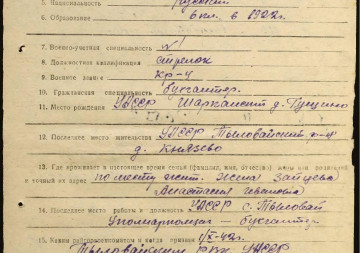 5. Национальность русский
6. Образование 6 кл. в 1922 г.
7. Военно-учетная специальность №1
8. Должностная квалификация стрелок
9. Военное звание кр-ц
10. Гражданская специальность бухгалтер.
11. Место рождения УАССР Шарканский д. Гущино
12. Последнее место жительства УАССР Тыловайский р-н
д. Князево
13. Где проживает в настоящее время семья (фамилия, имя, отчество)
и точный их адрес по месту жит. жена Зайцева
Анастасия Ивановна
14. Последнее место работы и должность УАССР с. Тыловай
бухгалтер
15. Каким райвоенкоматом и когда призван 1/X-42г.
Тыловайским РВК УАССР